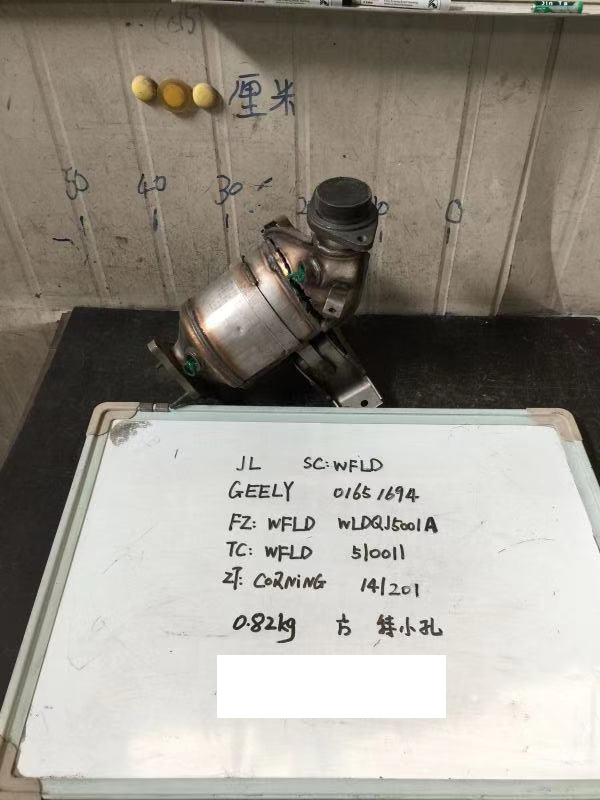 厘米
50 40 30 0
JL SC:WFLD
GEELY 01651694
FZ: WFLD WLDQJ5001A
TC: WFLD 510011
ZT: CORNING 14/201
0.82kg 方 特小孔